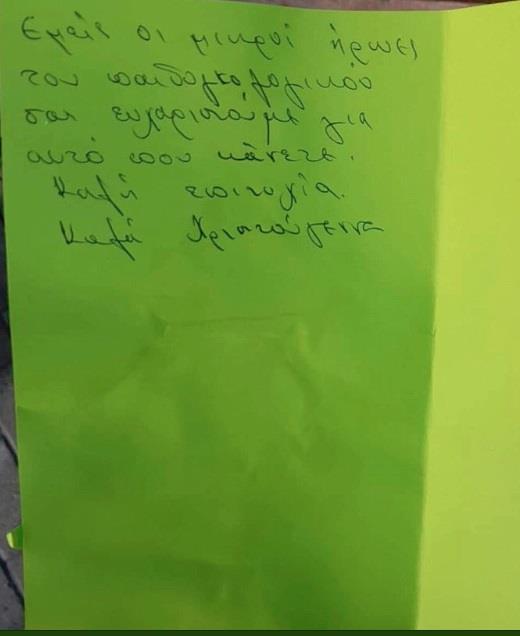 Εμείς οι μικροί ήρωες
του παιδογκολογικού
σας ευχαριστούμε για
αυτό που κάνετε.
Καλή επιτυχία.
Καλά Χριστούγεννα